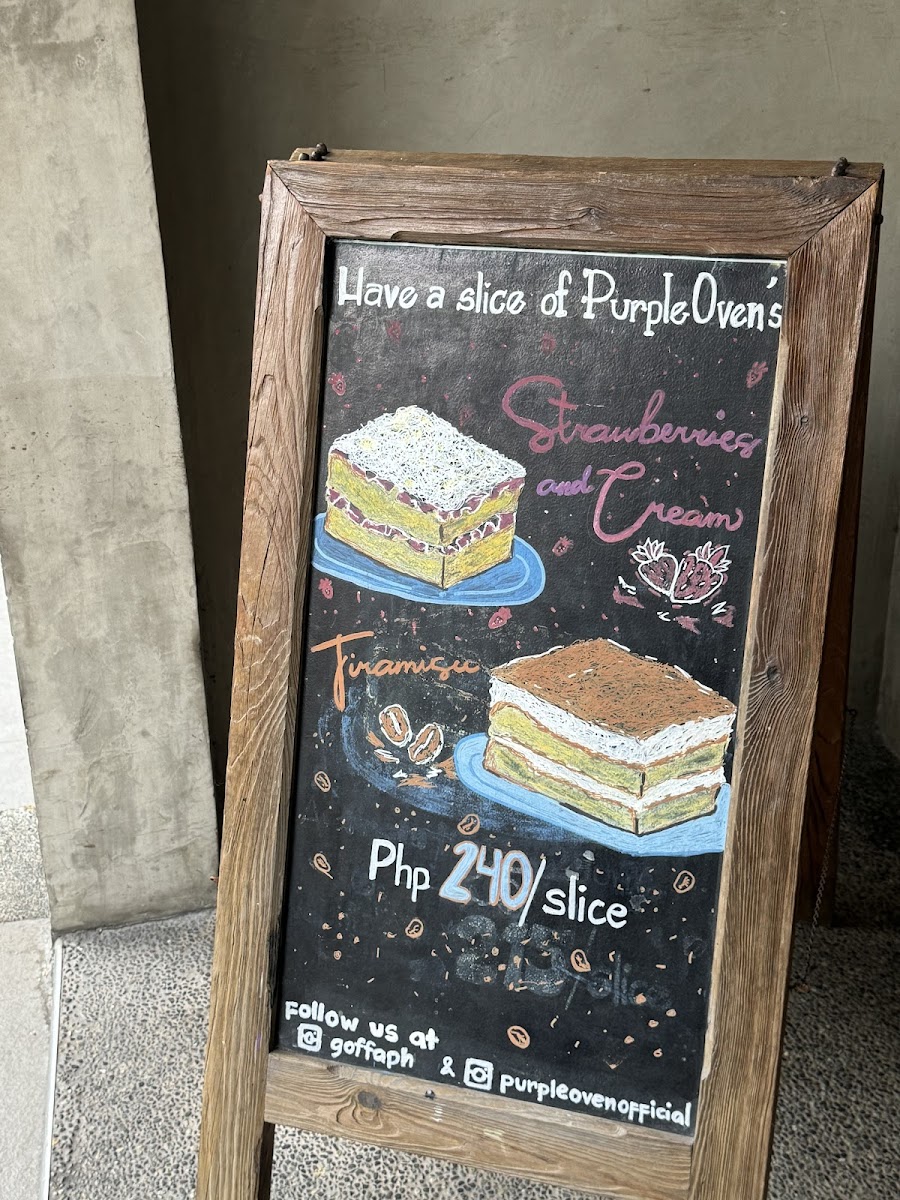 Have a slice of Purple Oven's
Strawberries
and Cream
Tiramisu
Php 240/slice
Follow us at
goffaph & purpleovenofficial